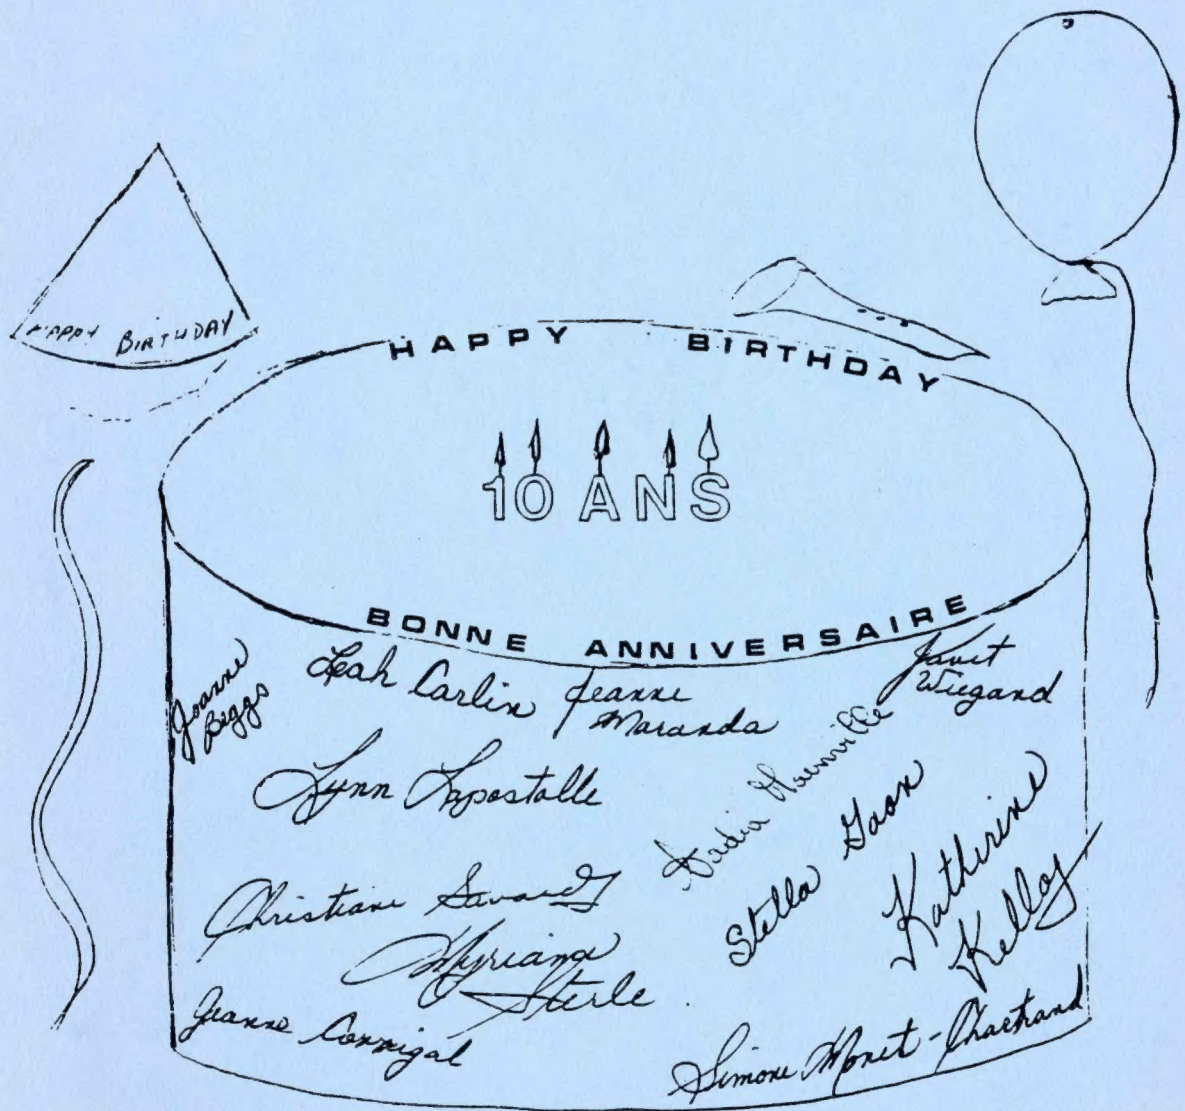 HAPPY BIRTHDAY
HAPPY BIRTHDAY
10 ANS
BONNE ANNIVERSAIRE
Joanne
Beggs
Leah Carlin
Jeanne
Maranda
Janet
Wiegand
Lynn Lapostalle
Stella Gaon
Kathirine
Kelley
Christiane
Myriana
Sterle
Jeanne
Simone Monet-Chartrand